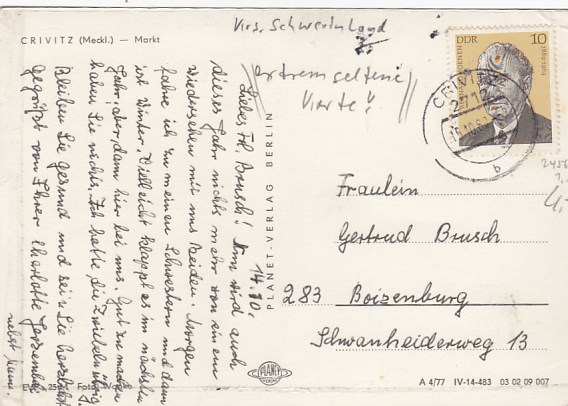 CRIVITZ (Meckl.) — Markt
Krs. Schwerin Land
extrem seltene
Karte!
DDR 10
CRIVITZ
b
14.10.
Liebes Frl. Brusch! Nun wird auch
dieses Jahr nichts mehr von einem
Wiedersehen mit uns beiden. Morgen
fahre ich zu meinen Schwestern und dann
ist Winter. Vielleicht klappt es im nächsten
Jahr, aber dann hier bei uns. Gut zu machen
haben Sie nichts. Ich hatte die
Bleiben Sie gesund und seien Sie herzlichst
gegrüßt von Ihrer Charlotte
nebst Mann.
PLANET-VERLAG BERLIN
Fräulein
Gertrud Brusch
283 Boizenburg
Schwanheiderweg 13
PLANET
A 4/77 IV-14-483 03 02 09 007